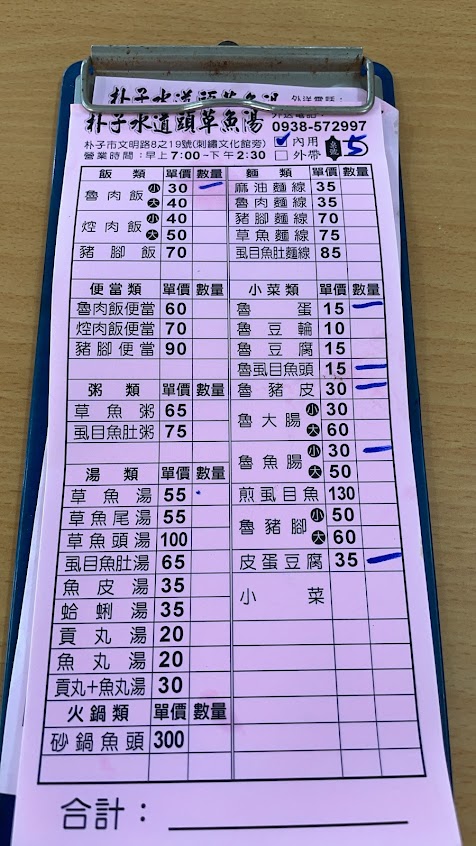 朴子水道頭草魚湯
外送電話：
朴子水道頭草魚湯
外送電話：
0938-572997
朴子市文明路8之19號(刺繡文化館旁)
營業時間：早上7:00~下午2:30
✓內用
□外帶
桌號 5
飯類 單價 數量
魯肉飯 小 30
大 40
焢肉飯 小 40
大 50
豬腳飯 70
便當類 單價 數量
魯肉飯便當 60
焢肉飯便當 70
豬腳便當 90
粥類 單價 數量
草魚粥 65
虱目魚肚粥 75
湯類 單價 數量
草魚湯 55
草魚尾湯 55
草魚頭湯 100
虱目魚肚湯 65
魚皮湯 35
蛤蜊湯 35
貢丸湯 20
魚丸湯 20
貢丸+魚丸湯 30
火鍋類 單價 數量
砂鍋魚頭 300
麵類 單價 數量
麻油麵線 35
魯肉麵線 35
豬腳麵線 70
草魚麵線 75
虱目魚肚麵線 85
小菜類 單價 數量
魯蛋 15
魯豆輪 10
魯豆腐 15
魯虱目魚頭 15
魯豬皮 30
魯大腸 小 30
大 60
魯魚腸 小 30
大 50
煎虱目魚 130
魯豬腳 小 50
大 60
皮蛋豆腐 35
小菜
合計：